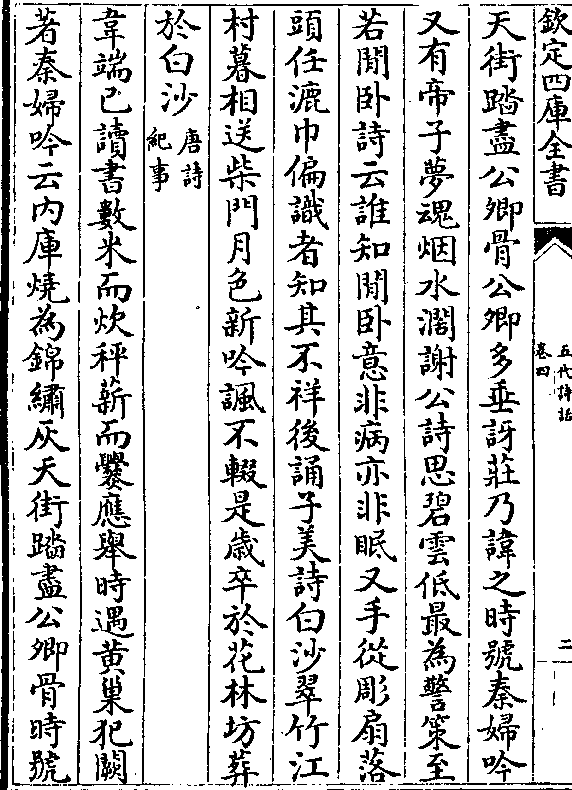 欽定四庫全書
五代詩話
卷四
二
天街踏盡公卿骨公卿多垂訝莊乃諱之時號秦婦吟
又有帝子夢魂烟水濶謝公詩思碧雲低最為警策至
若閒卧詩云誰知閒卧意非病亦非眠又手從彫扇落
頭任漉巾偏識者知其不祥後誦子美詩白沙翠竹江
村暮相送柴門月色新吟諷不輟是歲卒於花林坊葬
於白沙
唐詩
紀事
韋端己讀書數米而炊秤薪而爨應舉時遇黄巢犯闕
著秦婦吟云内庫燒為錦繡灰天街踏盡公卿骨時號